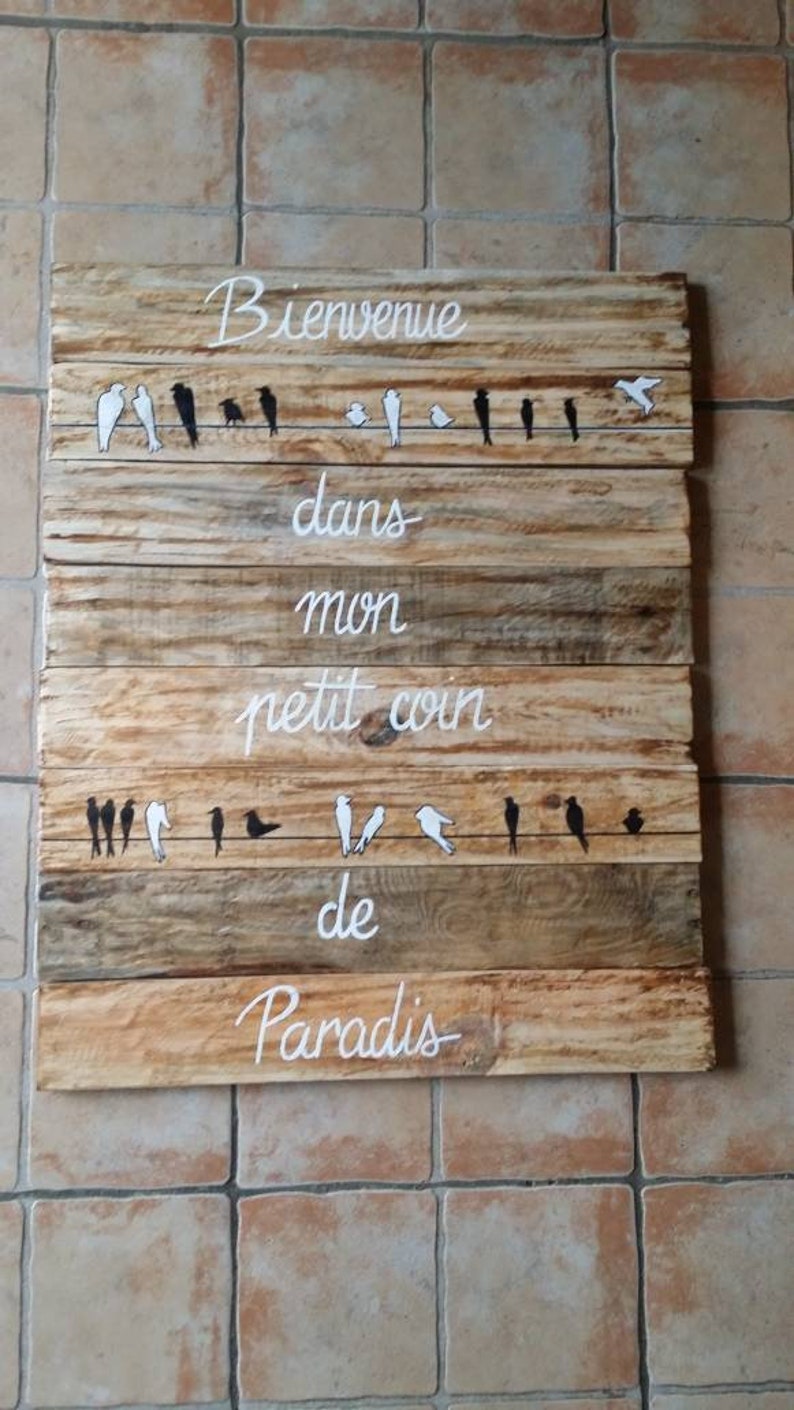 Bienvenue
dans
mon
petit coin
de
Paradis